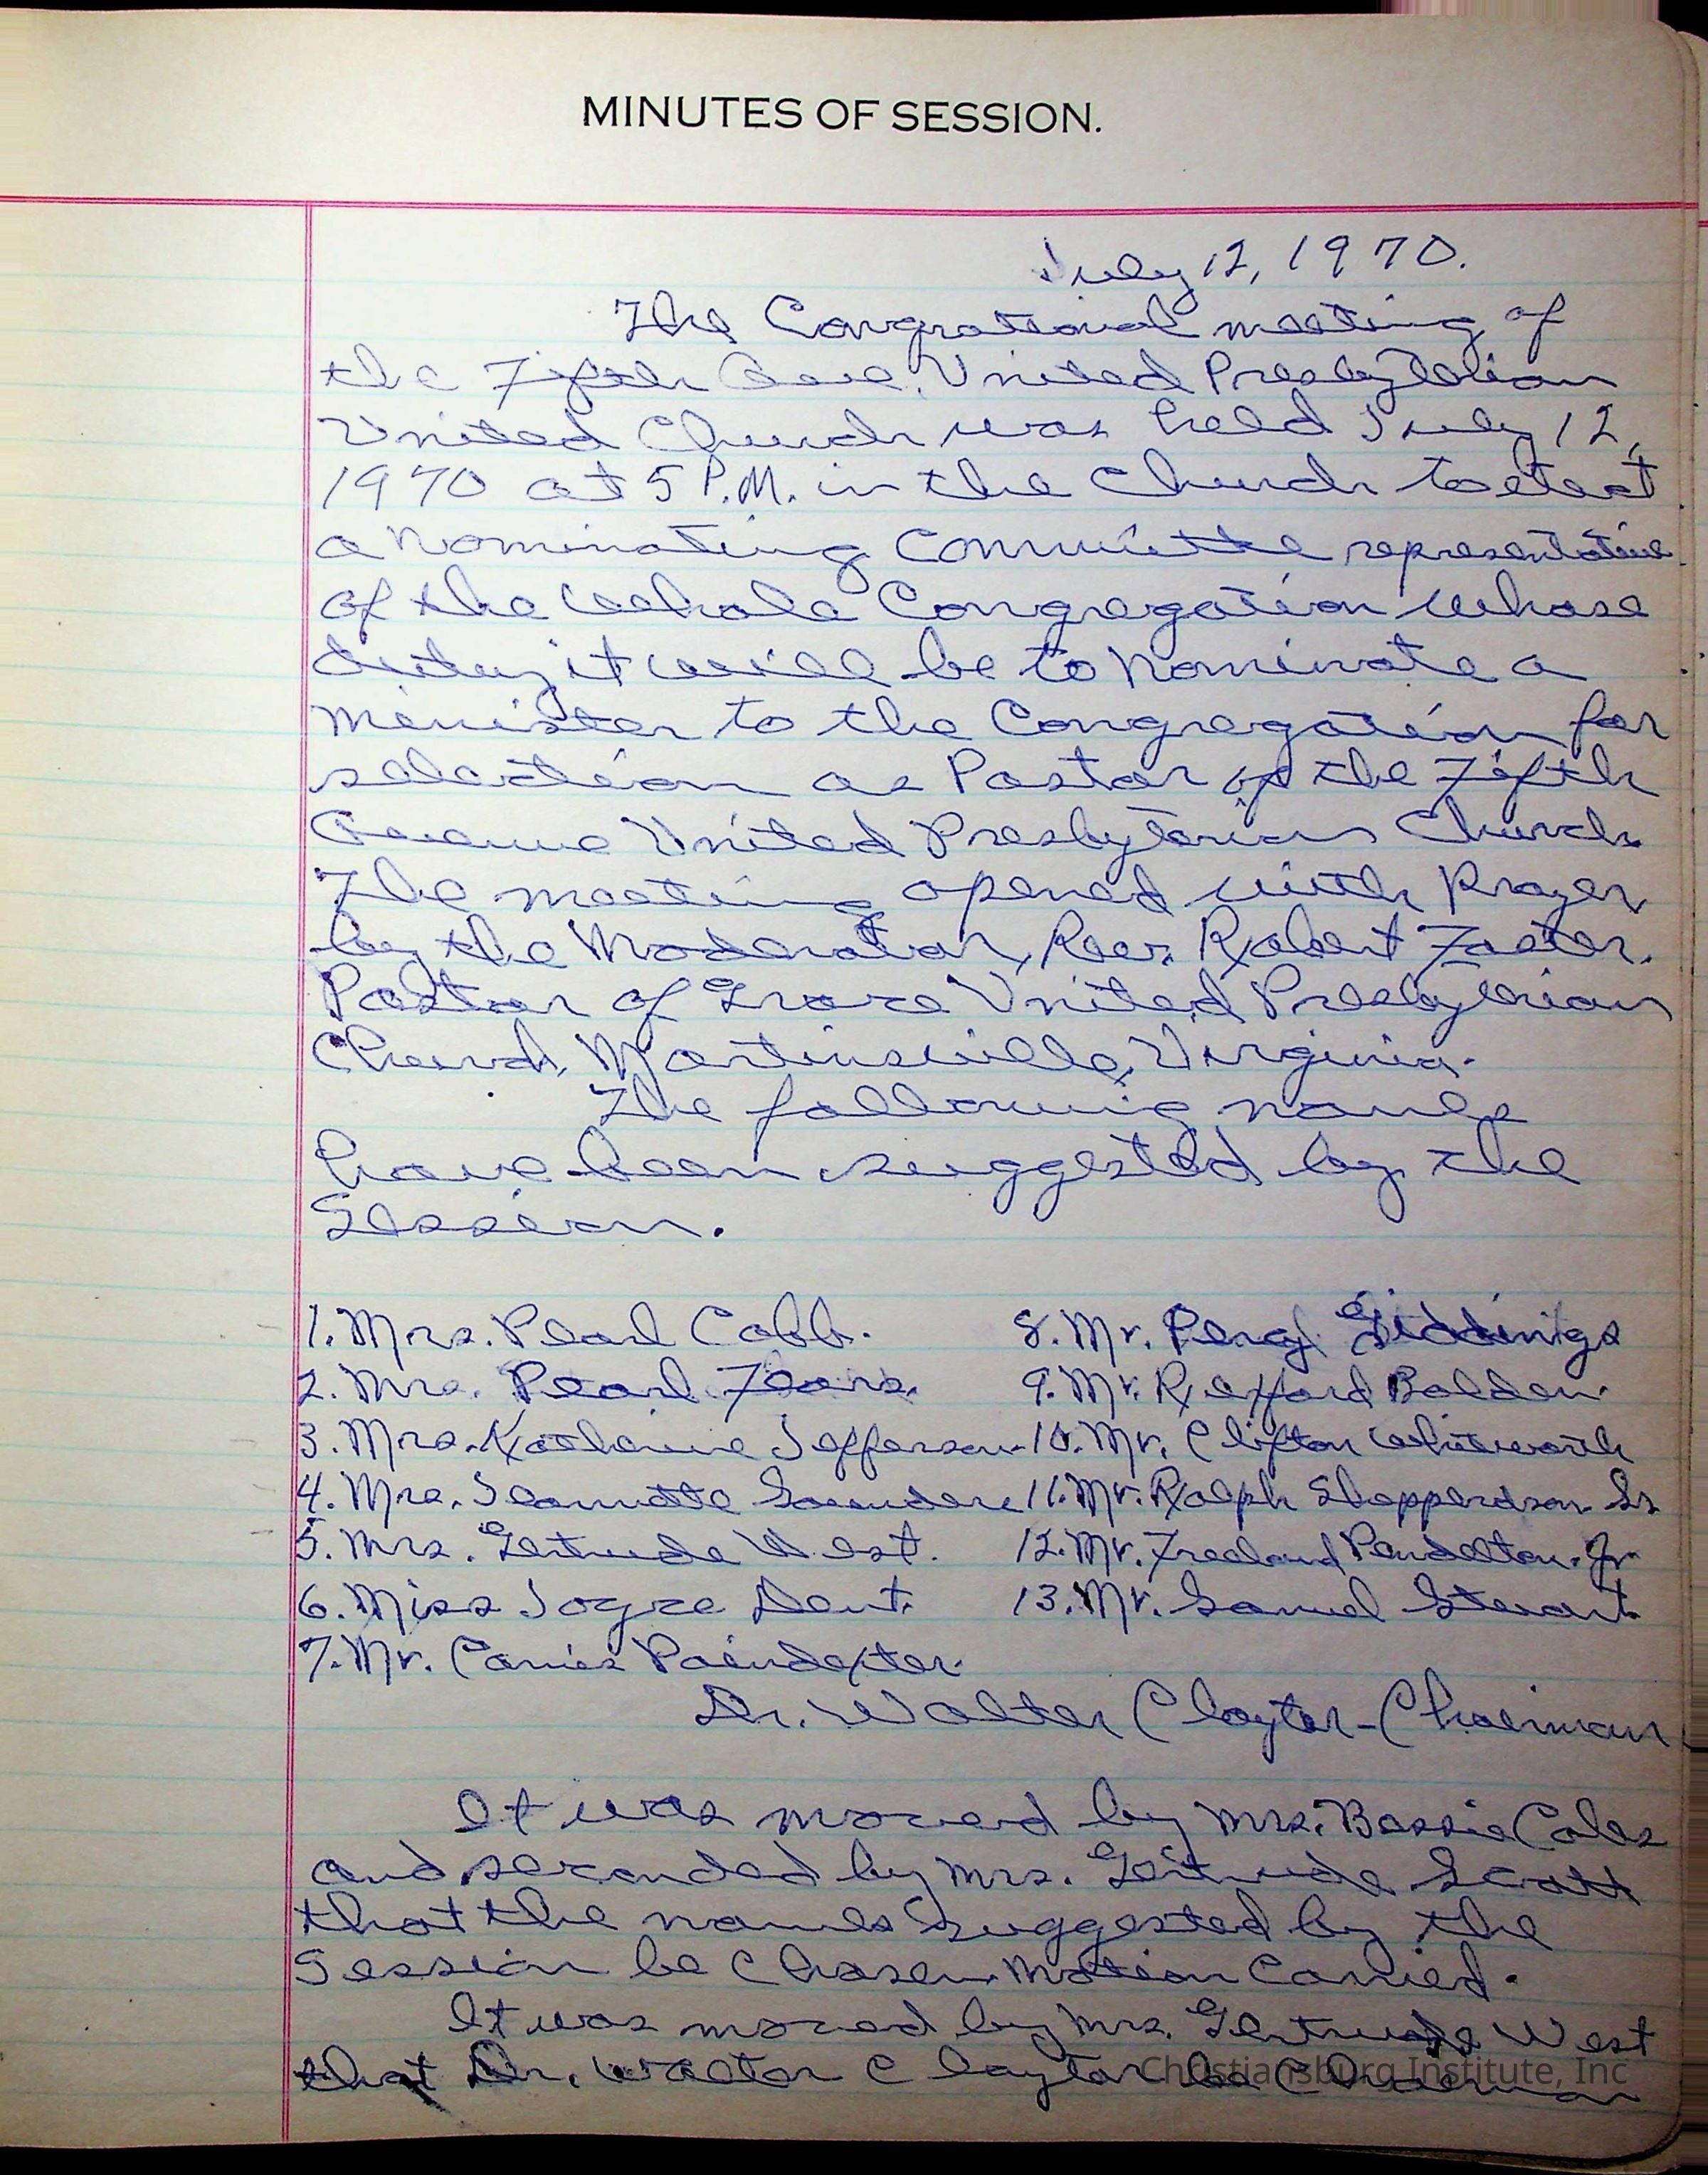 MINUTES OF SESSION.
July 12, 1970.
The Congrational meeting of
the Fifth Ave. United Presbyterian
United Church was held July 12,
1970 at 5 P.M. in the Church to elect
a Nominating Committe representative
of the whole Congregation whose
duty it will be to Nominate a
Minister to the Congregation for
selection as Pastor of the Fifth
Avenue United Presbyterian Church.
The meeting opened with Prayer
by the Moderator, Rev. Robert Foster.
Pastor of Grace United Presbyterian
Church, Martinsville, Virginia.
The following names
have been suggested by the
Session.
1. Mrs. Pearl Cobb. 8. Mr. Percy Giddings
2. Mrs. Pearl Fears. 9. Mr. Rexford Bolden
3. Mrs. Katherine Jefferson. 10. Mr. Clifton Whitworth
4. Mrs. Jeannette Saunders 11. Mr. Ralph Shepperdson Sr
5. Mrs. Gertrude West. 12. Mr. Freeland Pendelton. Jr.
6. Miss Joyce Dent. 13. Mr. Samuel Stewart.
7. Mr. Poindexter.
Dr. Walter Claytor - Chairman
It was moved by Mrs. Bessie Coles
and seconded by Mrs. Gertrude Scott
that the names suggested by the
Session be Chosen. Motion Carried.
It was moved by Mrs. Gertrude West
that Dr. Walter Claytor be Chairman
Christiansburg Institute, Inc